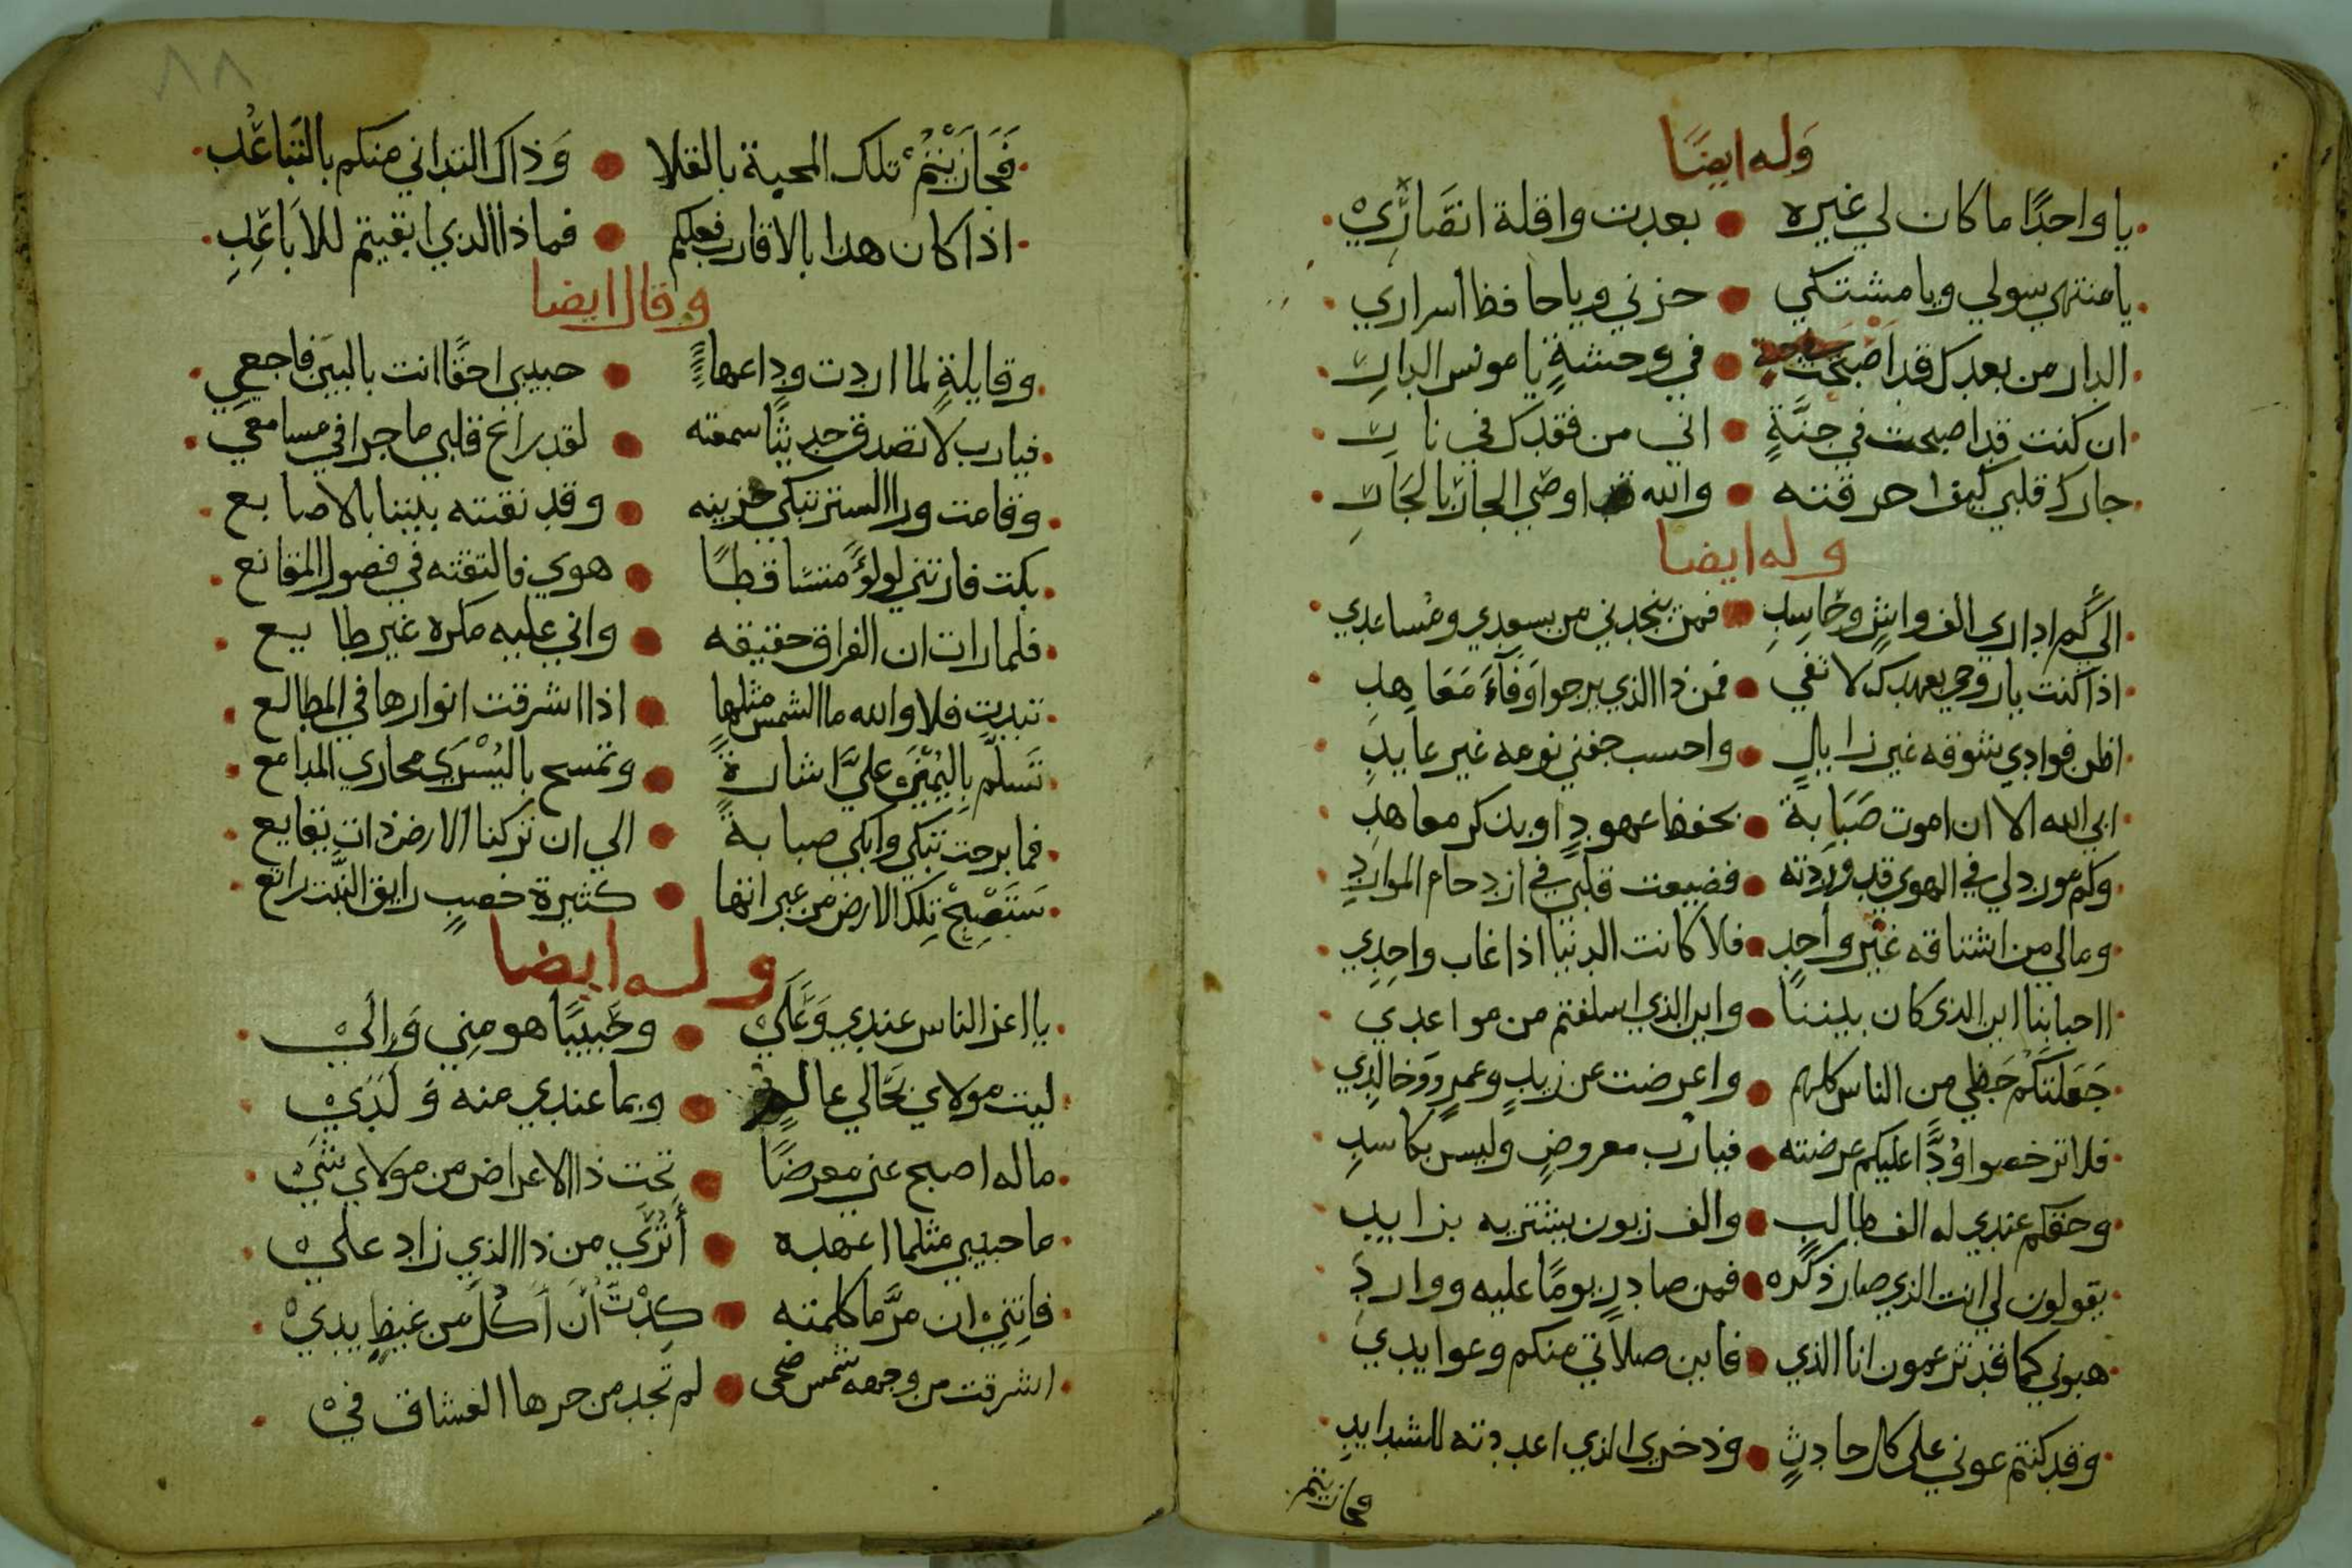 وله ايضا
يا واحدًا ما كان لي غيره • بعدت واقلة انصاري
يا منتهي سولي ويا مشتكي • حزني ويا حافظ اسراري
الدار من بعدك قد اصبحت • في وحشةٍ يا مونس الدار
ان كنت قد اصبحت في جنَّةٍ • اني من فقدك في نار
جارك قلبي كيف احرقته • والله اوصي الجار بالجار
وله ايضا
الي كم اداري الف واشٍ وحاسدِ • فمن ينجدني من بسعدي ومساعدي
اذا كنت يا روحي بعهدك لا تفي • فمن ذا الذي يرجوا وفآء معاهد
اظن فوادي شوقه غير زايالٍ • واحسب جفني نومه غير عايد
ابي الله الا ان اموت صَبَابة • بحفظ عهودٍ او بذكر معاهد
وكم مورد لي في الهوي قد وردته • فضيعت قلبي في ازدحام الموارد
ومالي من اشتاقه غير واحدٍ • فلا كانت الدنيا اذا غاب واحدي
ااحبابنا اين الذي كان بيننا • واين الذي اسلفتم من مواعدي
جَعَلتكم حظي من الناس كلهم • واعرضت عن زيدٍ وعمرٍو وخالدي
فلا ترخصوا وُدًّا عليكم عرضته • فيا رب معروضٍ وليس بكاسدِ
وحقكم عندي له الف طالبٍ • والف زبون يشتريه بزايد
يقولون لي انت الذي صار ذكره • فمن صادرٍ يومًا عليه ووارد
هبوني كما قد تزعمون انا الذي • فاين صلاتي منكم وعوايدي
وقد كنتم عوني علي كل حادثٍ • وذخري الذي اعددته للشدايدِ
فجازيتم
٨٨
فَجَازَيْتُمُ تلك المحبة بالقلا • وَذاك التداني منكم بالتباعُد
اذا كان هذا بالاقارب فعلكم • فماذا الذي ابقيتم للاباعِدِ
وقال ايضا
وقايلةٍ لما اردت وداعها • حبيبي احقًا انت بالبين فاجعي
فيا رب لا تصدق حديثًا سمعته • لقد راع قلبي ما جرا في مسامعي
وقامت ورا الستر تبكي حزينه • وقد نقبته بيننا بالاصابع
بكت فارتني لولؤًا متساقطًا • هوي فالتقته في فصول المقانع
فلما رات ان الفراق حقيقه • واني عليه مكره غير طايع
تبدت فلا والله ما الشمس مثلها • اذا اشرقت انوارها في المطالع
تسلّم باليُمْنَى عليَّ اشارةً • وتمسح باليُسْرَي مجاري المدامع
فما برحت تبكي وابكي صبابة • الي ان تركنا الارض ذات نقايع
سَتَصْبِحُ تلك الارض من عبراتها • كثيرة خصبٍ رايق النَّبْت رايع
وله ايضا
يا اعز الناس عندي وَعَلَيْ • وحَبيبًا هو مِنِي وَإلَيْ
ليت مولاي بحَالي عالمٍ • وبما عندي منه وَ لَدَيْ
ما له اصبح عني معرضًا • تحت ذا الاعراض من مولاي شَيْ
ما حبيبي مثلما اعهده • أتُرَي من ذا الذي زاد عليْ
فانِنِيْ ان مرَّ ما كلمته • كِدْتُ أن أكُلَ من غيظٍ يديْ
اشرقت من وجهه شمس ضحي • لم تجد من حرها العشاق فيْ